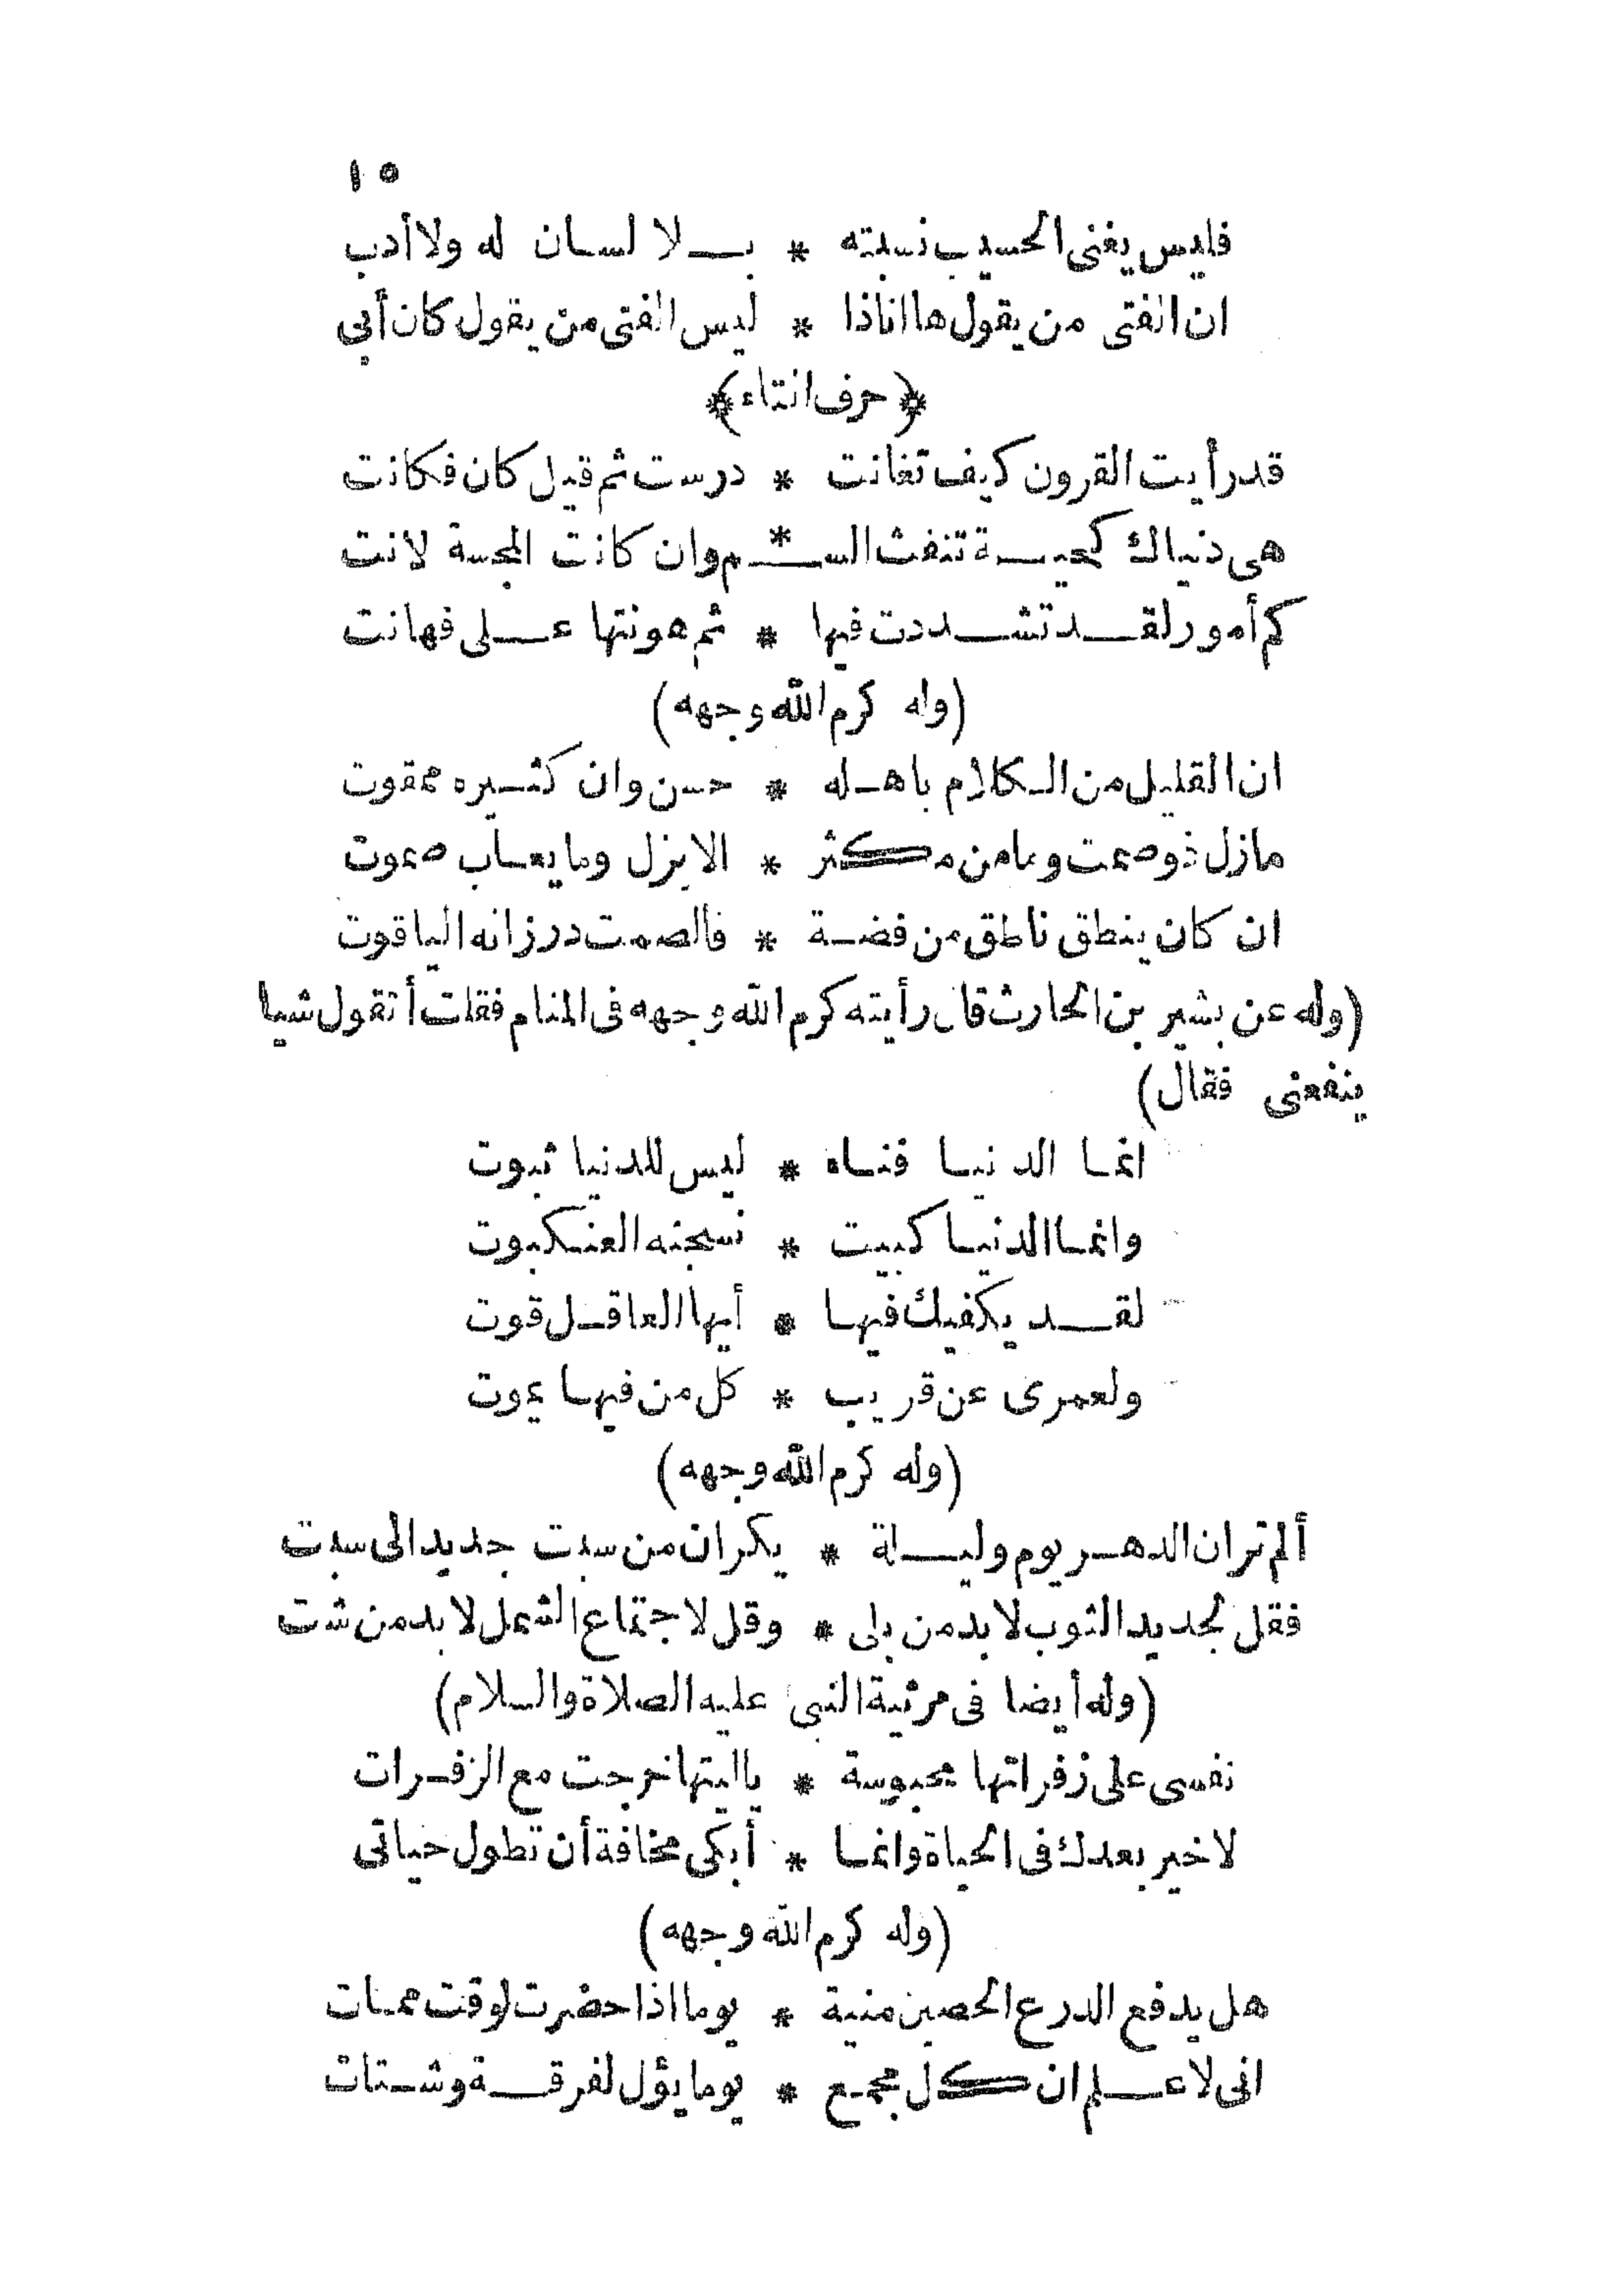 ١٥
فليس يغنى الحسيب نسبته * بلا لسان له ولا أدب
ان الفتى من يقول ها اناذا * ليس الفتى من يقول كان أبى
﴿حرف التاء﴾
قد رأيت القرون كيف تفانت * درست ثم قيل كان فكانت
هى دنياك كحية تنفث الس * م وان كانت المجسة لانت
كم أمور لقد تشددت فيها * ثم هونتها على فهانت
(وله كرم الله وجهه)
ان القليل من الكلام باهله * حسن وان كثيره ممقوت
مازل ذو صمت وما من مكثر * الا يزل وما يعاب صموت
ان كان ينطق ناطق من فضة * فالصمت در زانه الياقوت
(وله عن بشير بن الحارث قال رأيته كرم الله وجهه فى المنام فقلت أتقول شيا
ينفعنى فقال)
انما الدنيا فناء * ليس للدنيا ثبوت
وانما الدنيا كبيت * نسجته العنكبوت
لقد يكفيك فيها * أيها العاقل قوت
ولعمرى عن قريب * كل من فيها يموت
(وله كرم الله وجهه)
ألم تر ان الدهر يوم وليلة * يكران من سبت جديد الى سبت
فقل لجديد الثوب لا بد من بلى * وقل لاجتماع الشمل لا بد من شت
(وله أيضا فى مرثية النبى عليه الصلاة والسلام)
نفسى على زفراتها محبوسة * ياليتها خرجت مع الزفرات
لا خير بعدك فى الحياة وانما * أبكى مخافة أن تطول حياتى
(وله كرم الله وجهه)
هل يدفع الدرع الحصين منية * يوما اذا حضرت لوقت ممات
انى لاعلم ان كل مجمع * يوما يؤل لفرقة وشتات